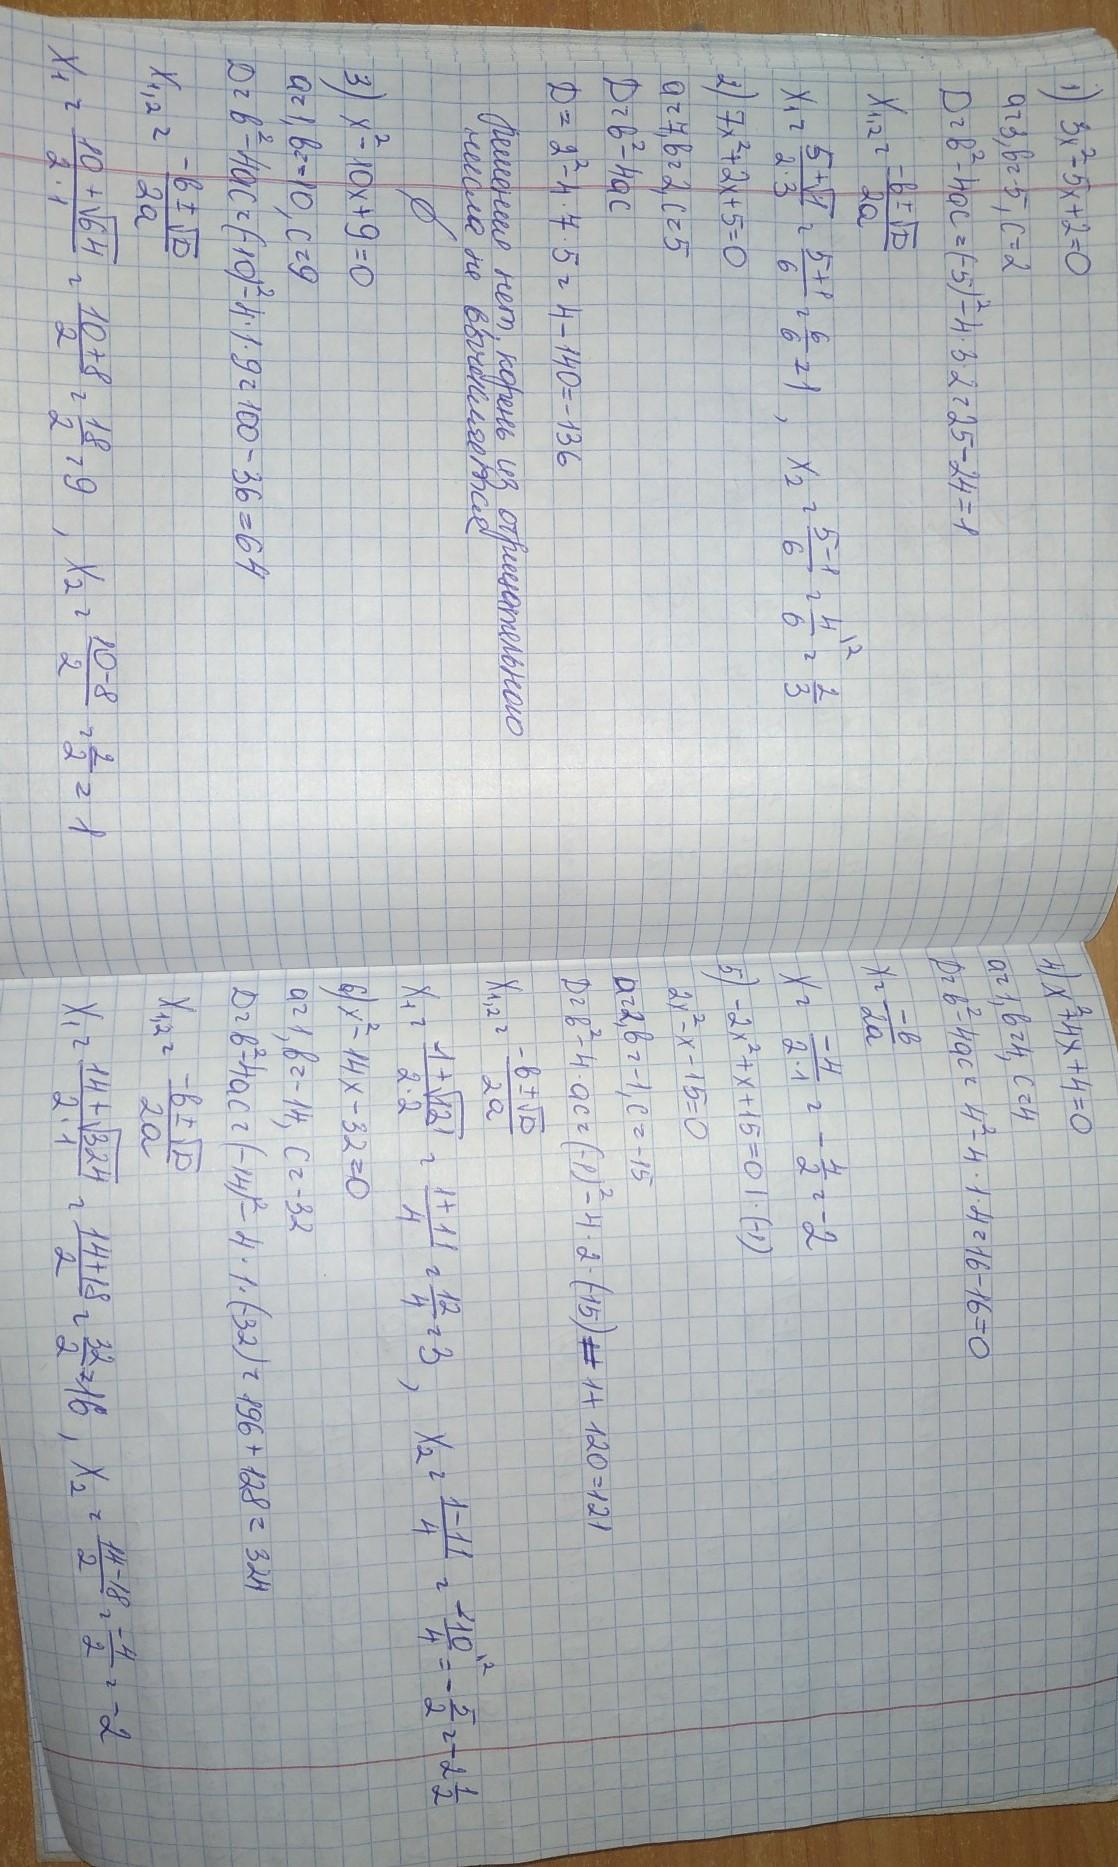 1) 3x²-5x+2=0
a=3, b=-5, c=2
D=b²-4ac=(-5)²-4·3·2=25-24=1
x₁,₂ = (-b±√D)/2a
x₁ = (5+√1)/(2·3) = (5+1)/6 = 6/6 = 1, x₂ = (5-1)/6 = 4/6 |² = 2/3
2) 7x²+2x+5=0
a=7, b=2, c=5
D=b²-4ac
D=2²-4·7·5=4-140=-136
Решения нет, корень из отрицательного
числа не вычисляется
∅
3) x²-10x+9=0
a=1, b=-10, c=9
D=b²-4ac=(-10)²-4·1·9=100-36=64
x₁,₂ = (-b±√D)/2a
x₁ = (10+√64)/(2·1) = (10+8)/2 = 18/2 = 9, x₂ = (10-8)/2 = 2/2 = 1
4) x²+4x+4=0
a=1, b=4, c=4
D=b²-4ac=4²-4·1·4=16-16=0
x = -b/2a
x = -4/(2·1) = -4/2 = -2
5) -2x²+x+15=0 |·(-1)
2x²-x-15=0
a=2, b=-1, c=-15
D=b²-4·ac=(-1)²-4·2·(-15)=1+120=121
x₁,₂ = (-b±√D)/2a
x₁ = (1+√121)/(2·2) = (1+11)/4 = 12/4 = 3, x₂ = (1-11)/4 = -10/4 |² = -5/2 = -2 1/2
6) x²-14x-32=0
a=1, b=-14, c=-32
D=b²-4ac=(-14)²-4·1·(-32)=196+128=324
x₁,₂ = (-b±√D)/2a
x₁ = (14+√324)/(2·1) = (14+18)/2 = 32/2 = 16, x₂ = (14-18)/2 = -4/2 = -2